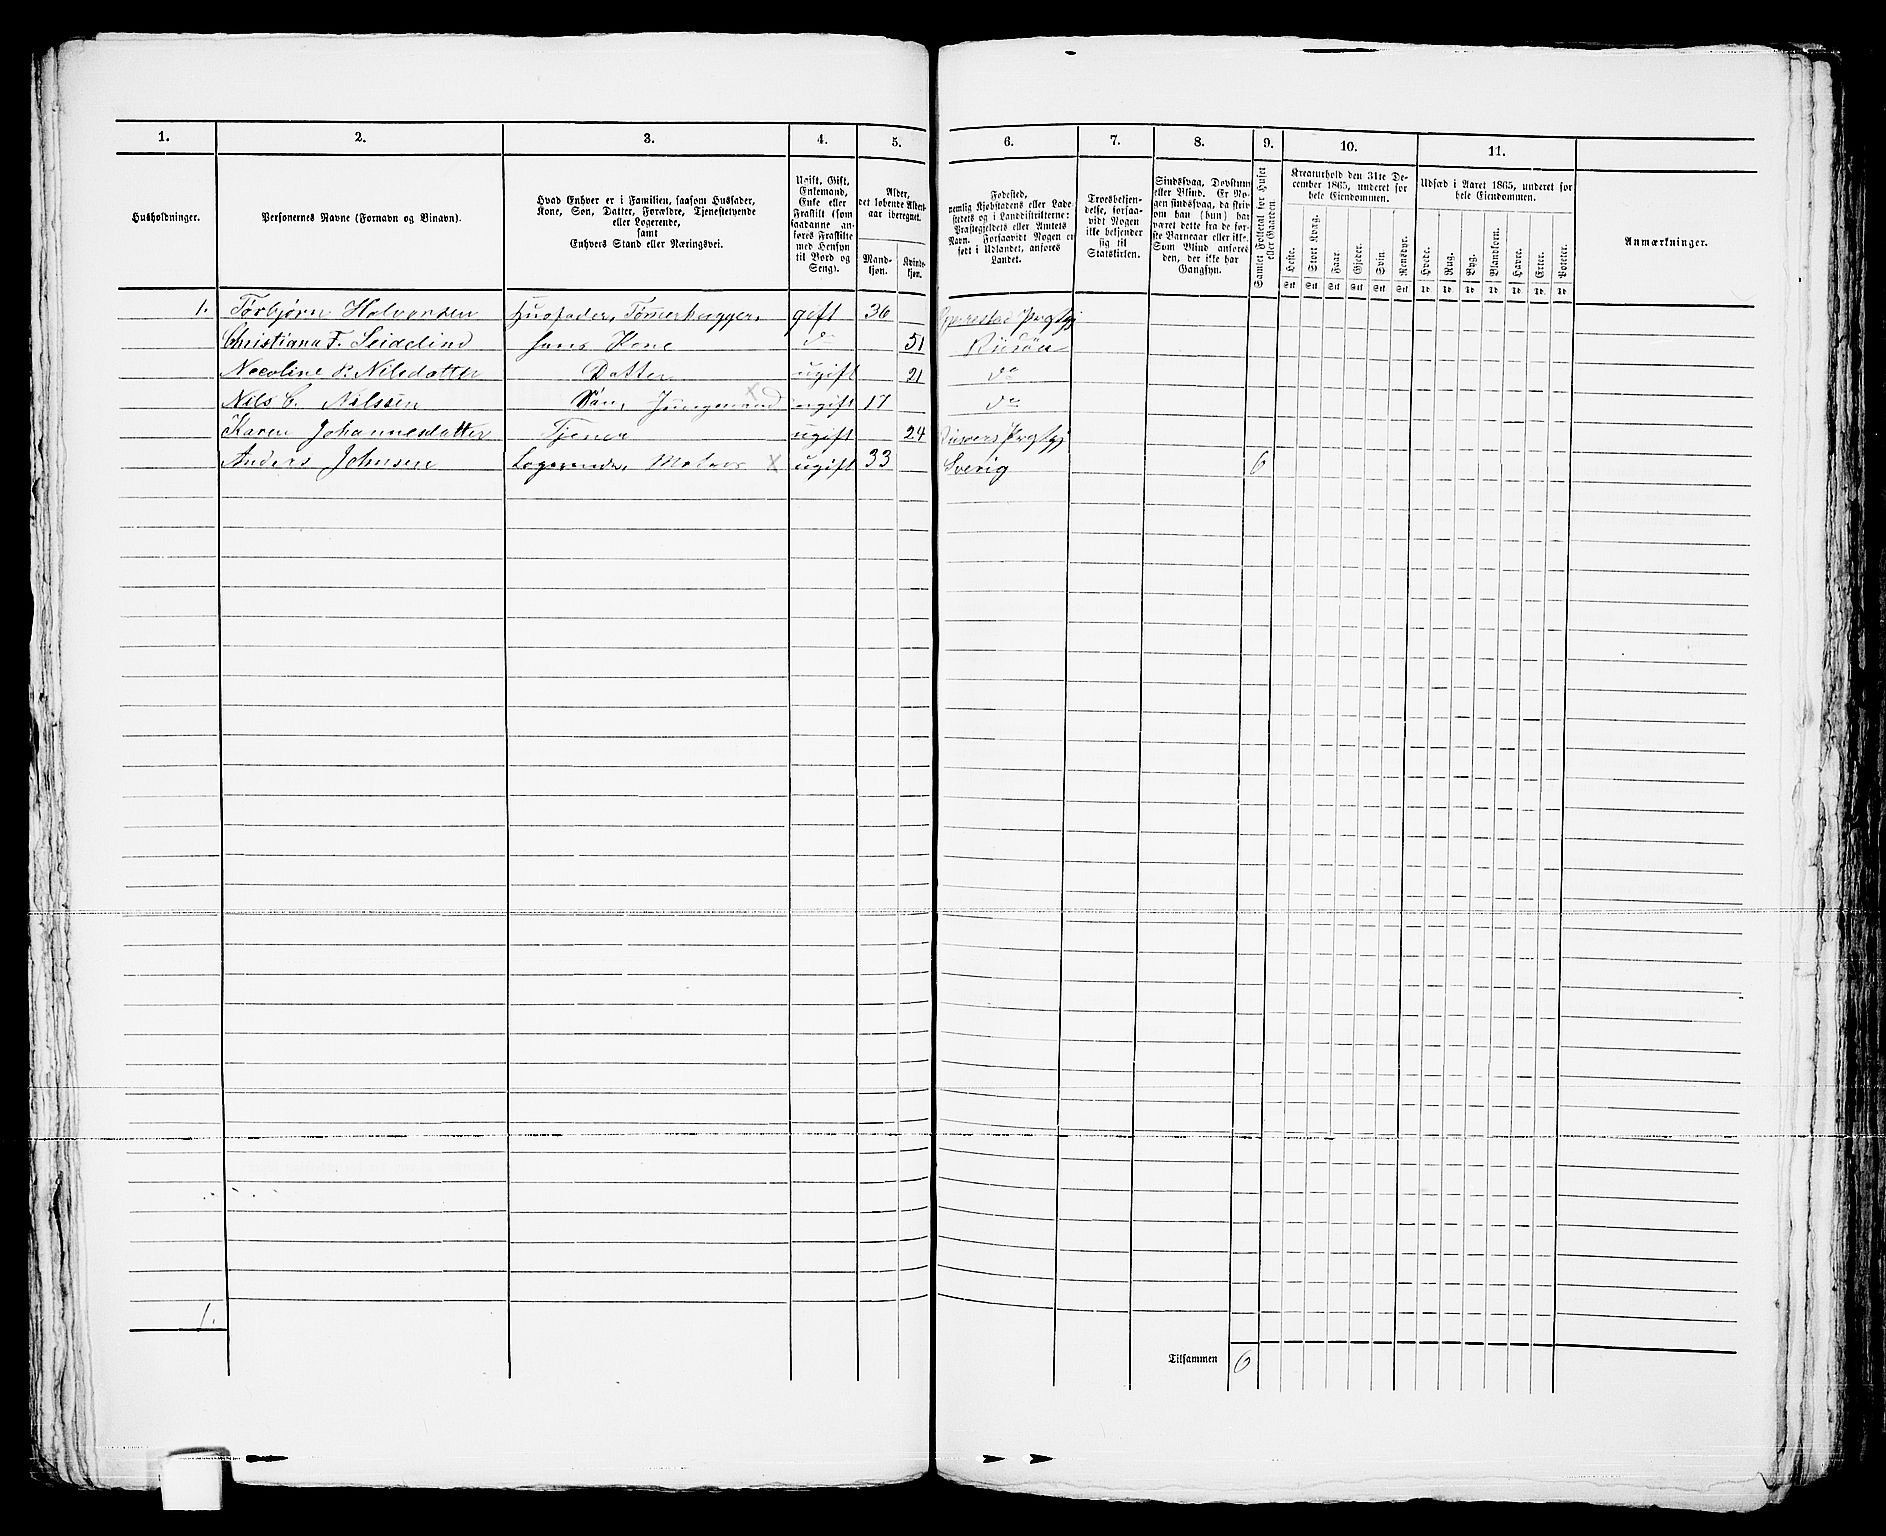 1. 2. 3. 4. 5. 6. 7. 8. 9. 10. 11.
Husholdninger.
Personernes Navne (Fornavn og Binavn).
Hvad Enhver er i Familien, saasom Husfader,
Kone, Søn, Datter, Forældre, Tjenestetyende
eller Logerende,
samt
Enhvers Stand eller Næringsvei.
Ugift, Gift,
Enkemand,
Enke eller
Fraskilt (som
saadanne an-
føres Fraskilte
med Hensyn
til Bord og
Seng).
Alder,
det løbende Alders-
aar iberegnet.
Mand-
kjøn.
Kvinde-
kjøn.
Fødested,
nemlig Kjøbstadens eller Lade-
stedets og i Landdistrikterne:
Præstegjeldets eller Amtets
Navn. Forsaavidt Nogen er
født i Udlandet, anføres
Landet.
Troesbekjen-
delse, forsaa-
vidt Nogen
ikke bekjender
sig til
Statskirken.
Sindssvag, Døvstum
eller Blind. Er No-
gen sindssvag, da skri-
ves om han (hun) har
været dette fra de før-
ste Barneaar eller ikke.
Som Blind anføres
den, der ikke har
Gangsyn.
Samlet Folketal for Huset
eller Gaarden.
Kreaturhold den 31te De-
cember 1865, underet for
hele Eiendommen.
Heste. Stort Kvæg. Faar. Gjeder. Svin. Rensdyr.
Stk Stk Stk Stk Stk Stk
Udsæd i Aaret 1865, underet for
hele Eiendommen.
Hvede. Rug. Byg. Blandkorn. Havre. Erter. Poteter.
Td. Td. Td. Td. Td. Td. Td.
Anmærkninger.
1. Torbjørn Halvorsen Husfader, Tømerhugger, gift 36 Gjerrestad Prgstgj
Christiana F. Seidelind hans Kone do 51 Riisøer
Nicoline P. Nilsdatter Datter ugift 21 do
Nils C. Nilssen Søn, Jungmand ugift 17 do
Karen Johannesdatter Tjener ugift 24 Prgstgj
Anders Johnsen Logerende, Matros x ugift 33 Sverig 6
1.
Tilsammen 6